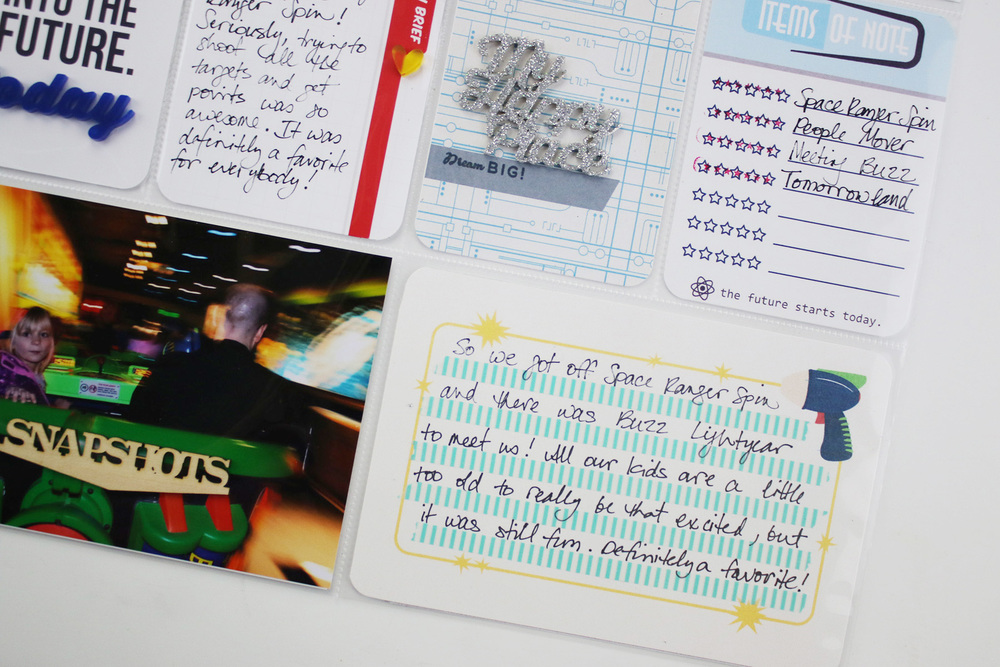 INTO THE
FUTURE.
today
Ranger Spin!
Seriously, trying to
shoot all the
targets and get
points was so
awesome. It was
definitely a favorite
for everybody!
BRIEF
My
Happy
Place
Dream BIG!
ITEMS OF NOTE
Space Ranger Spin
People Mover
Meeting Buzz
Tomorrowland
the future starts today.
SNAPSHOTS
So we got off Space Ranger Spin
and there was Buzz Lightyear
to meet us! All our kids are a little
too old to really be that excited, but
it was still fun. Definitely a favorite!